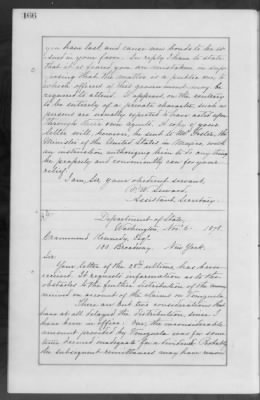 166
you have lost, and cause new bonds to be is-
sued in your favor. In reply I have to state
that it is feared you are mistaken in sup-
posing that the matter is a public one, to
which officers of this government may be
required to attend. It appears on the contrary
to be entirely of a private character, such as
present are usually expected to have acted upon
through their own agents. A copy of your
letter will, however, be sent to Mr Foster, the
Minister of the United States in Mexico, with
an instruction authorizing him to do any thing
he properly and conveniently can for your
relief.
I am, Sir, your obedient servant,
F. W. Seward,
Assistant Secretary.
Department of State,
Washington, Nov 6 1878.
Drammond Kennedy, Esq.
Broadway, New York.
Sir:
Your letter of the 28th ultimo, has been
received. It requests information as to the
obstacles to the further distribution of the
received on account of the claims on Venezuela.
There are but two considerations that
have at all delayed the distribution, since I
have been in office: One, the inconsiderable
amount provided by Venezuela was for some
time deemed inadequate for a dividend. Probably
the subsequent remittances may have